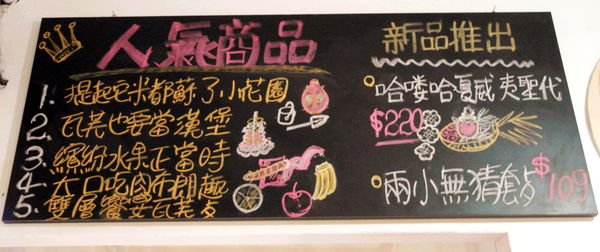 人氣商品
1. 提起尼米都蘇了小花園
2. 瓦芙也要當漢堡
3. 繽紛水果正當時
4. 大口吃肉布朗趣
5. 雙層饗宴瓦芙
新品推出
哈嘍哈夏威夷聖代
$220
兩小無猜套
$109